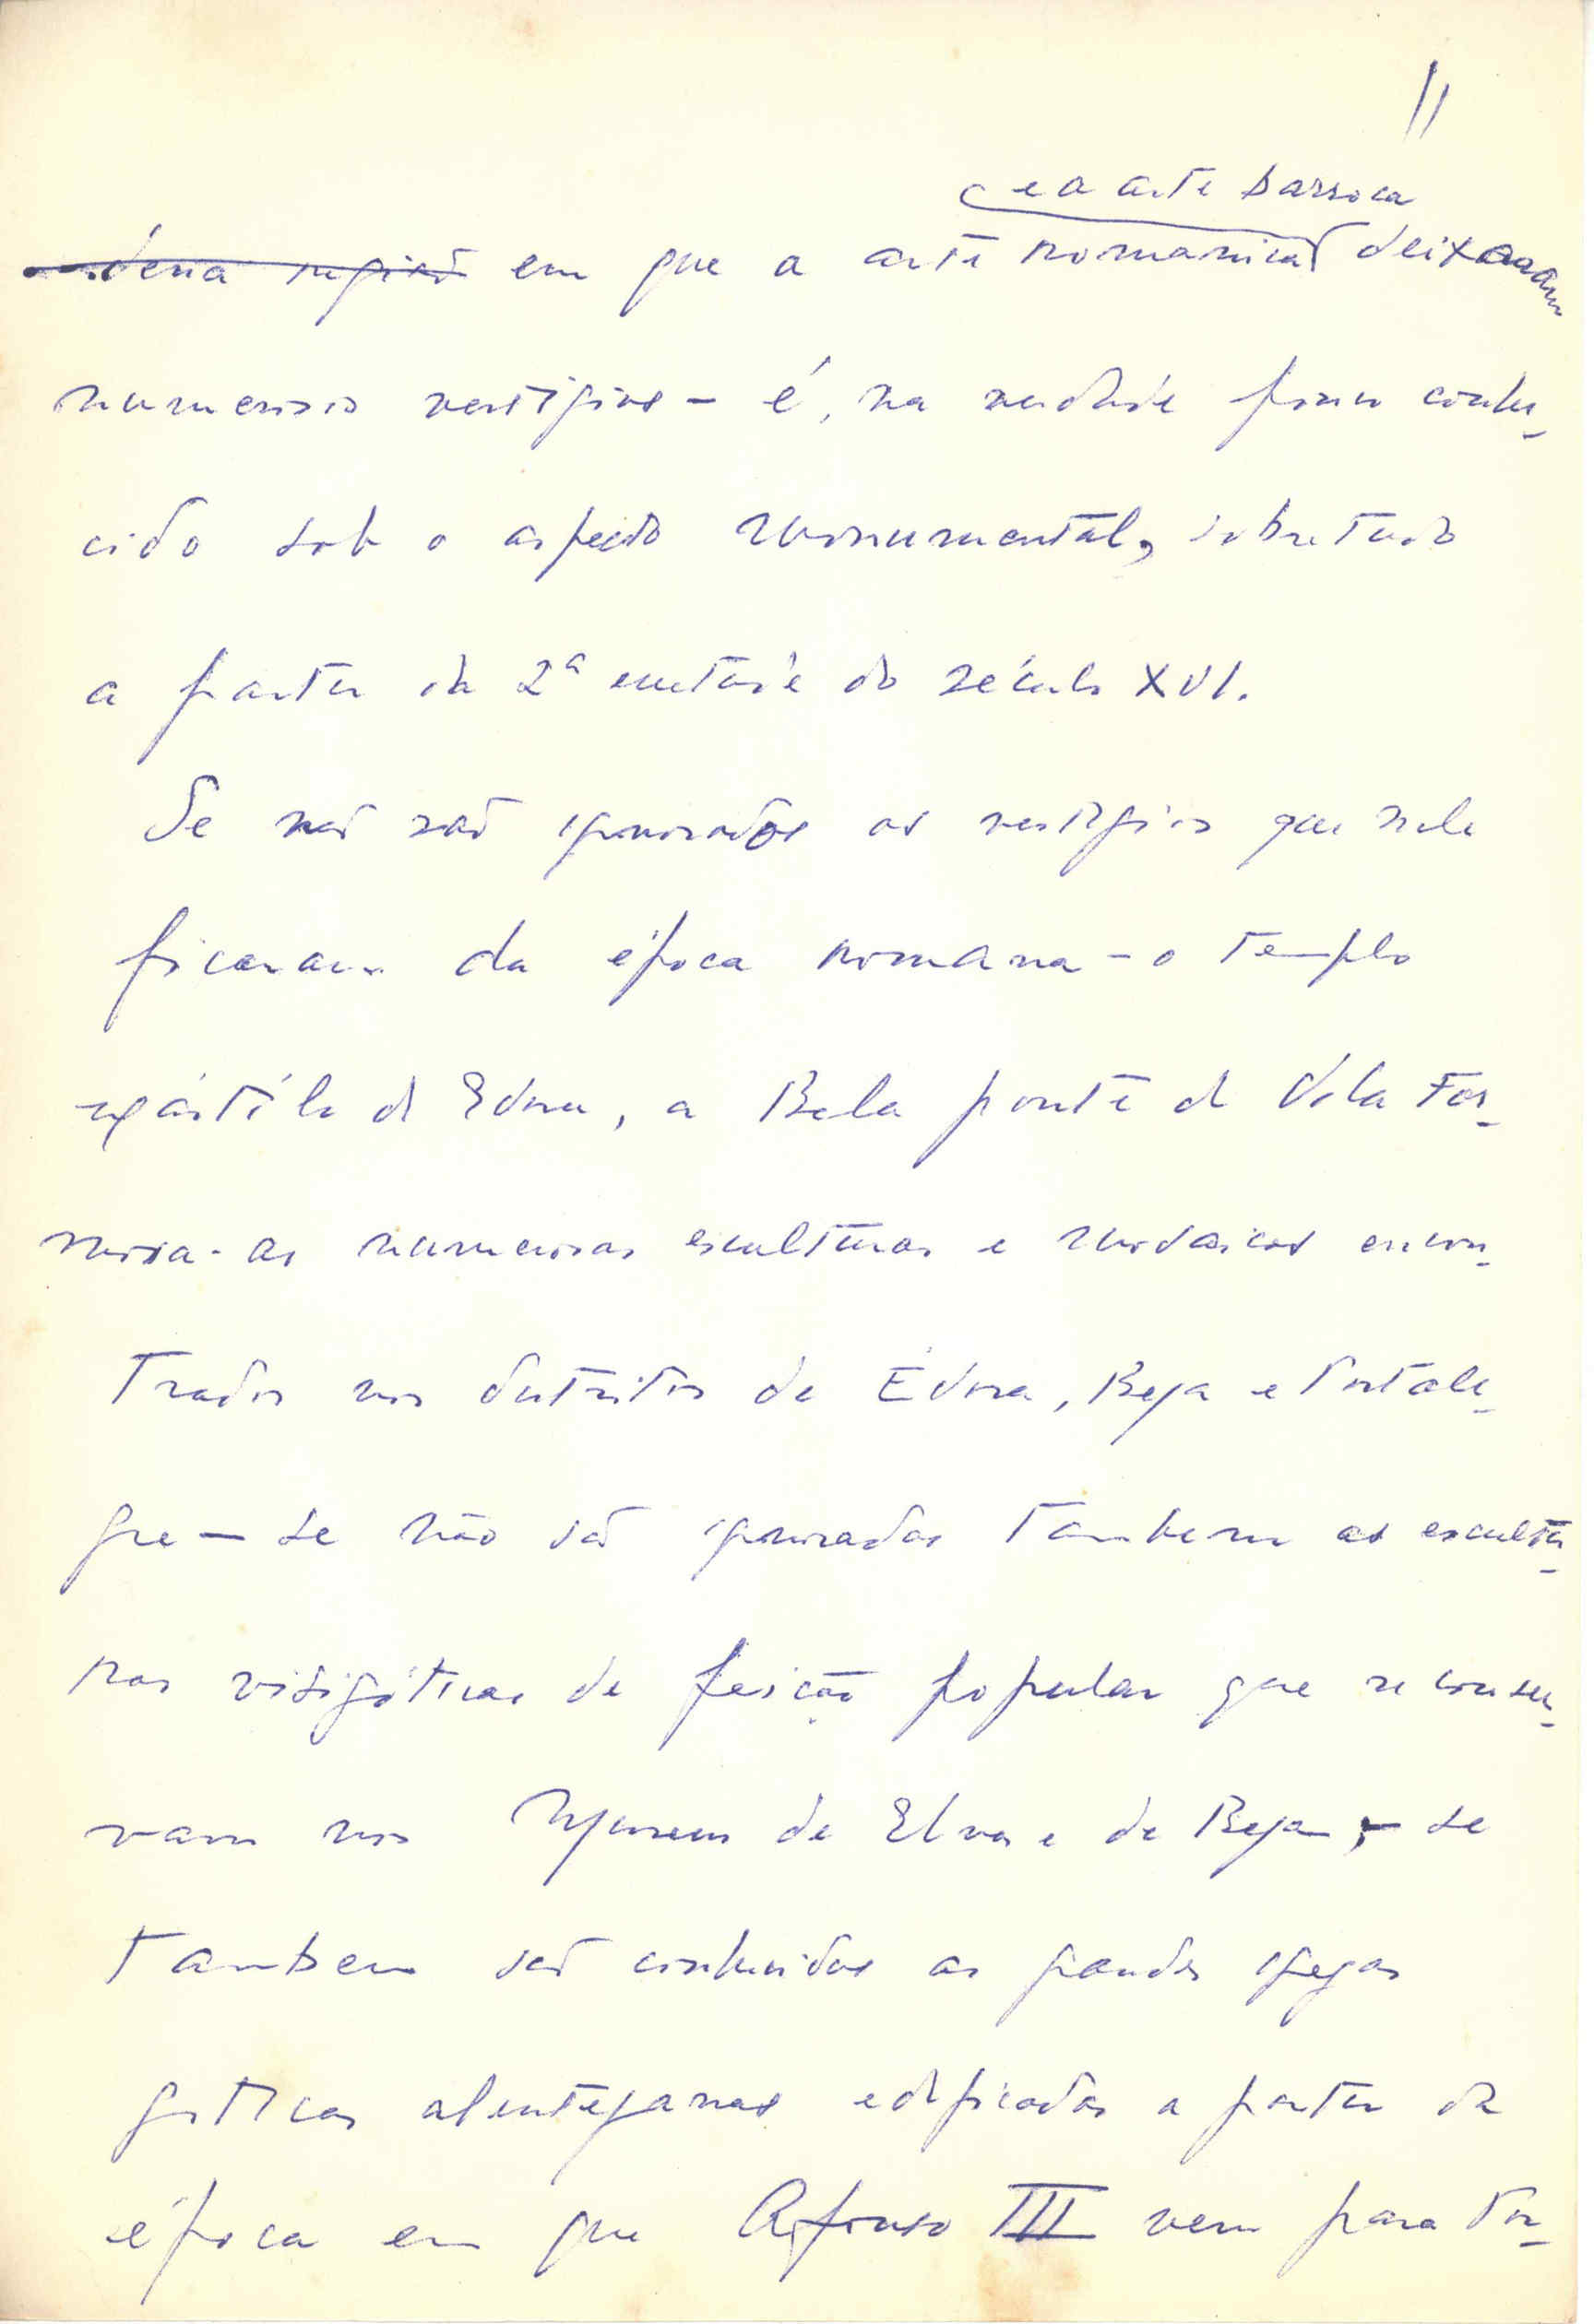 11
e a arte barroca
dessa região em que a arte romanica deixaram
numerosos vestigios - é, na verdade pouco conhe-
cido sob o aspecto monumental, sobretudo
a partir da 2ª metade do século XVI.
Se não são ignorados os vestigios que nele
ficaram da época romana - o templo
de Evora, a Bela ponte de Vila For-
mosa - as numerosas esculturas e mosaicos encon-
trados nos distritos de Évora, Beja e Portale-
gre - se não são ignoradas tambem as escultu-
ras visigóticas de feição popular que se conser-
vam nos Museus de Elvas e de Beja, - se
tambem são conhecidas as grandes igrejas
goticas alentejanas edificadas a partir da
época em que Afonso III vem para Por-